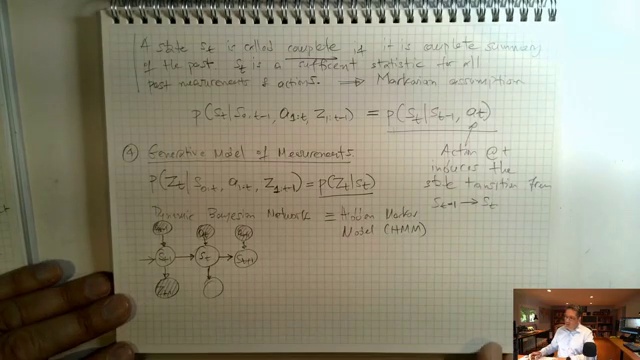 A state St is called complete if it is complete summary
of the past St is a sufficent statistic for all
past measurements & actions. ⟹ Markovian assumption
p(St|S0:t-1, a1:t, Z1:t-1) = p(St|St-1, at)
Action @ t
induces the
state transition from
St-1 → St
④ Generative Model of Measurements
p(Zt|S0:t, a1:t, Z1:t-1) = p(Zt|St)
Dynamic Bayesian Network ≡ Hidden Markov
Model (HMM)
at
St-1 St St+1